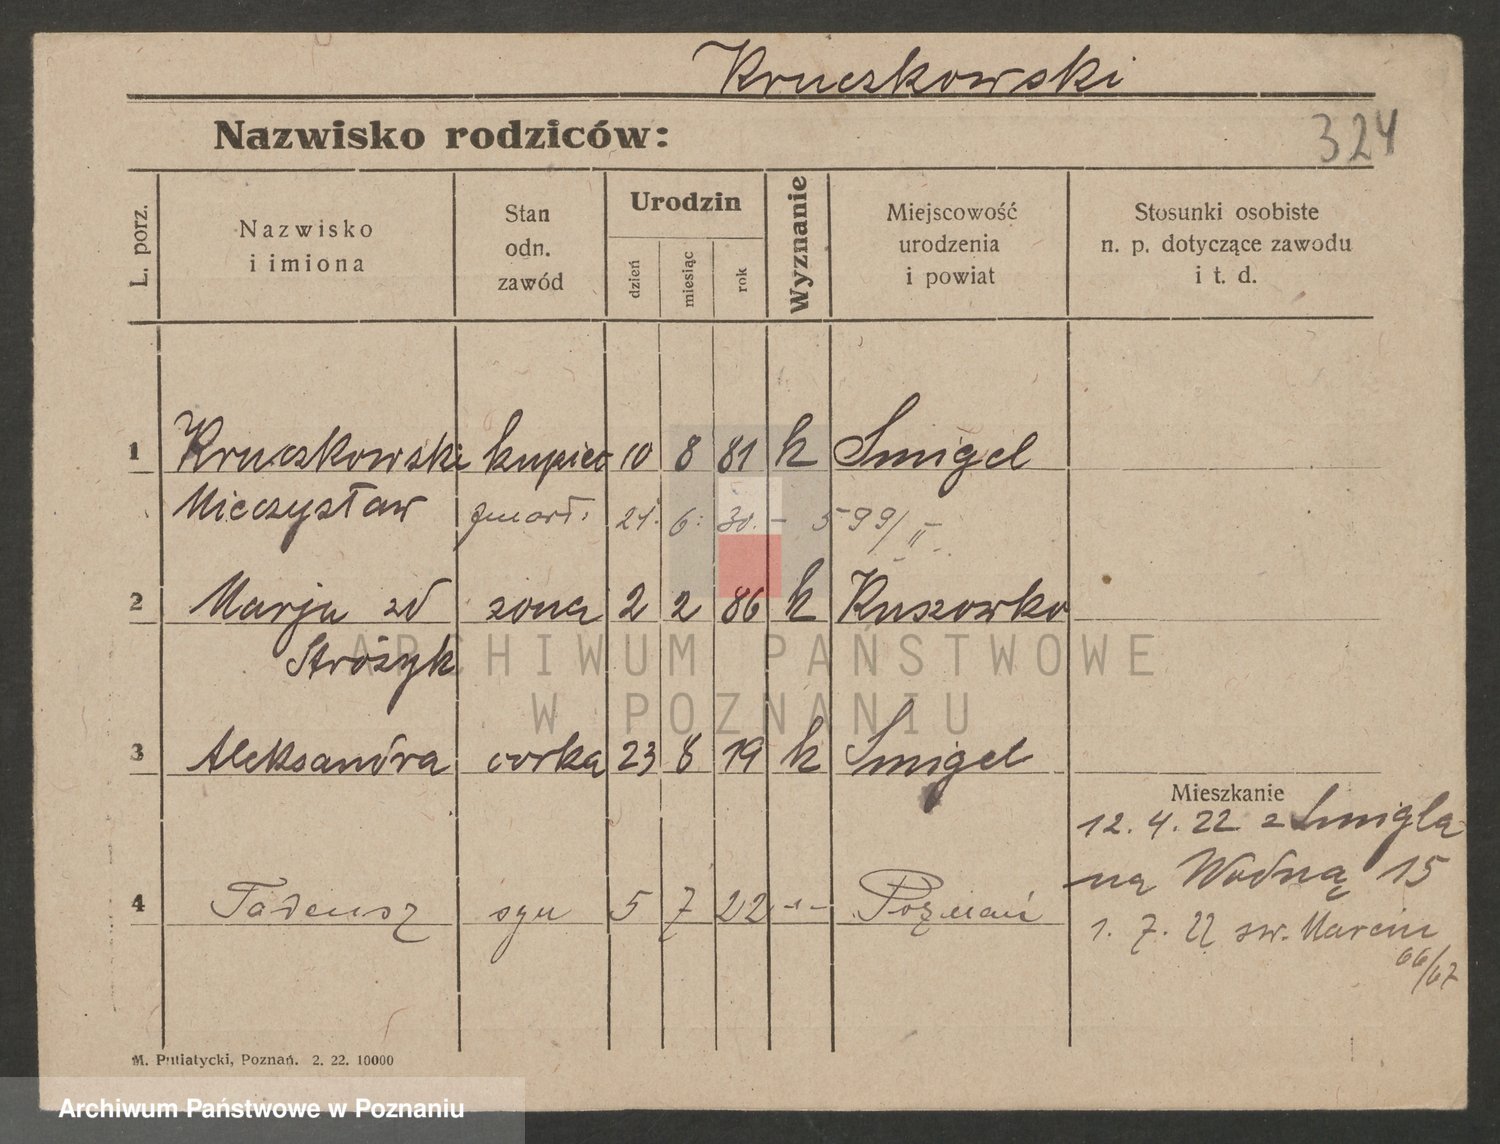 Kruczkowski
Nazwisko rodziców:
324
L. porz.
Nazwisko
i imiona
Stan
odn.
zawód
Urodzin
dzień
miesiąc
rok
Wyznanie
Miejscowość
urodzenia
i powiat
Stosunki osobiste
n. p. dotyczące zawodu
i t. d.
1 Kruczkowski kupiec 10 8 81 k Smigel
Mieczysław zmarł. 21. 6. 30. – 599/II
2 Marja zd żona 2 2 86 k Ruszowko
Strożyk
3 Aleksandra corka 23 8 19 k Smigel
Mieszkanie
12. 4. 22 z Smigla
na Wodną 15
4 Tadeusz syn 5 7 22 -"- Poznań
1. 7. 22 sw. Marcin
66/67
M. Putiatycki, Poznań. 2. 22. 10000
ARCHIWUM PAŃSTWOWE
W POZNANIU
Archiwum Państwowe w Poznaniu